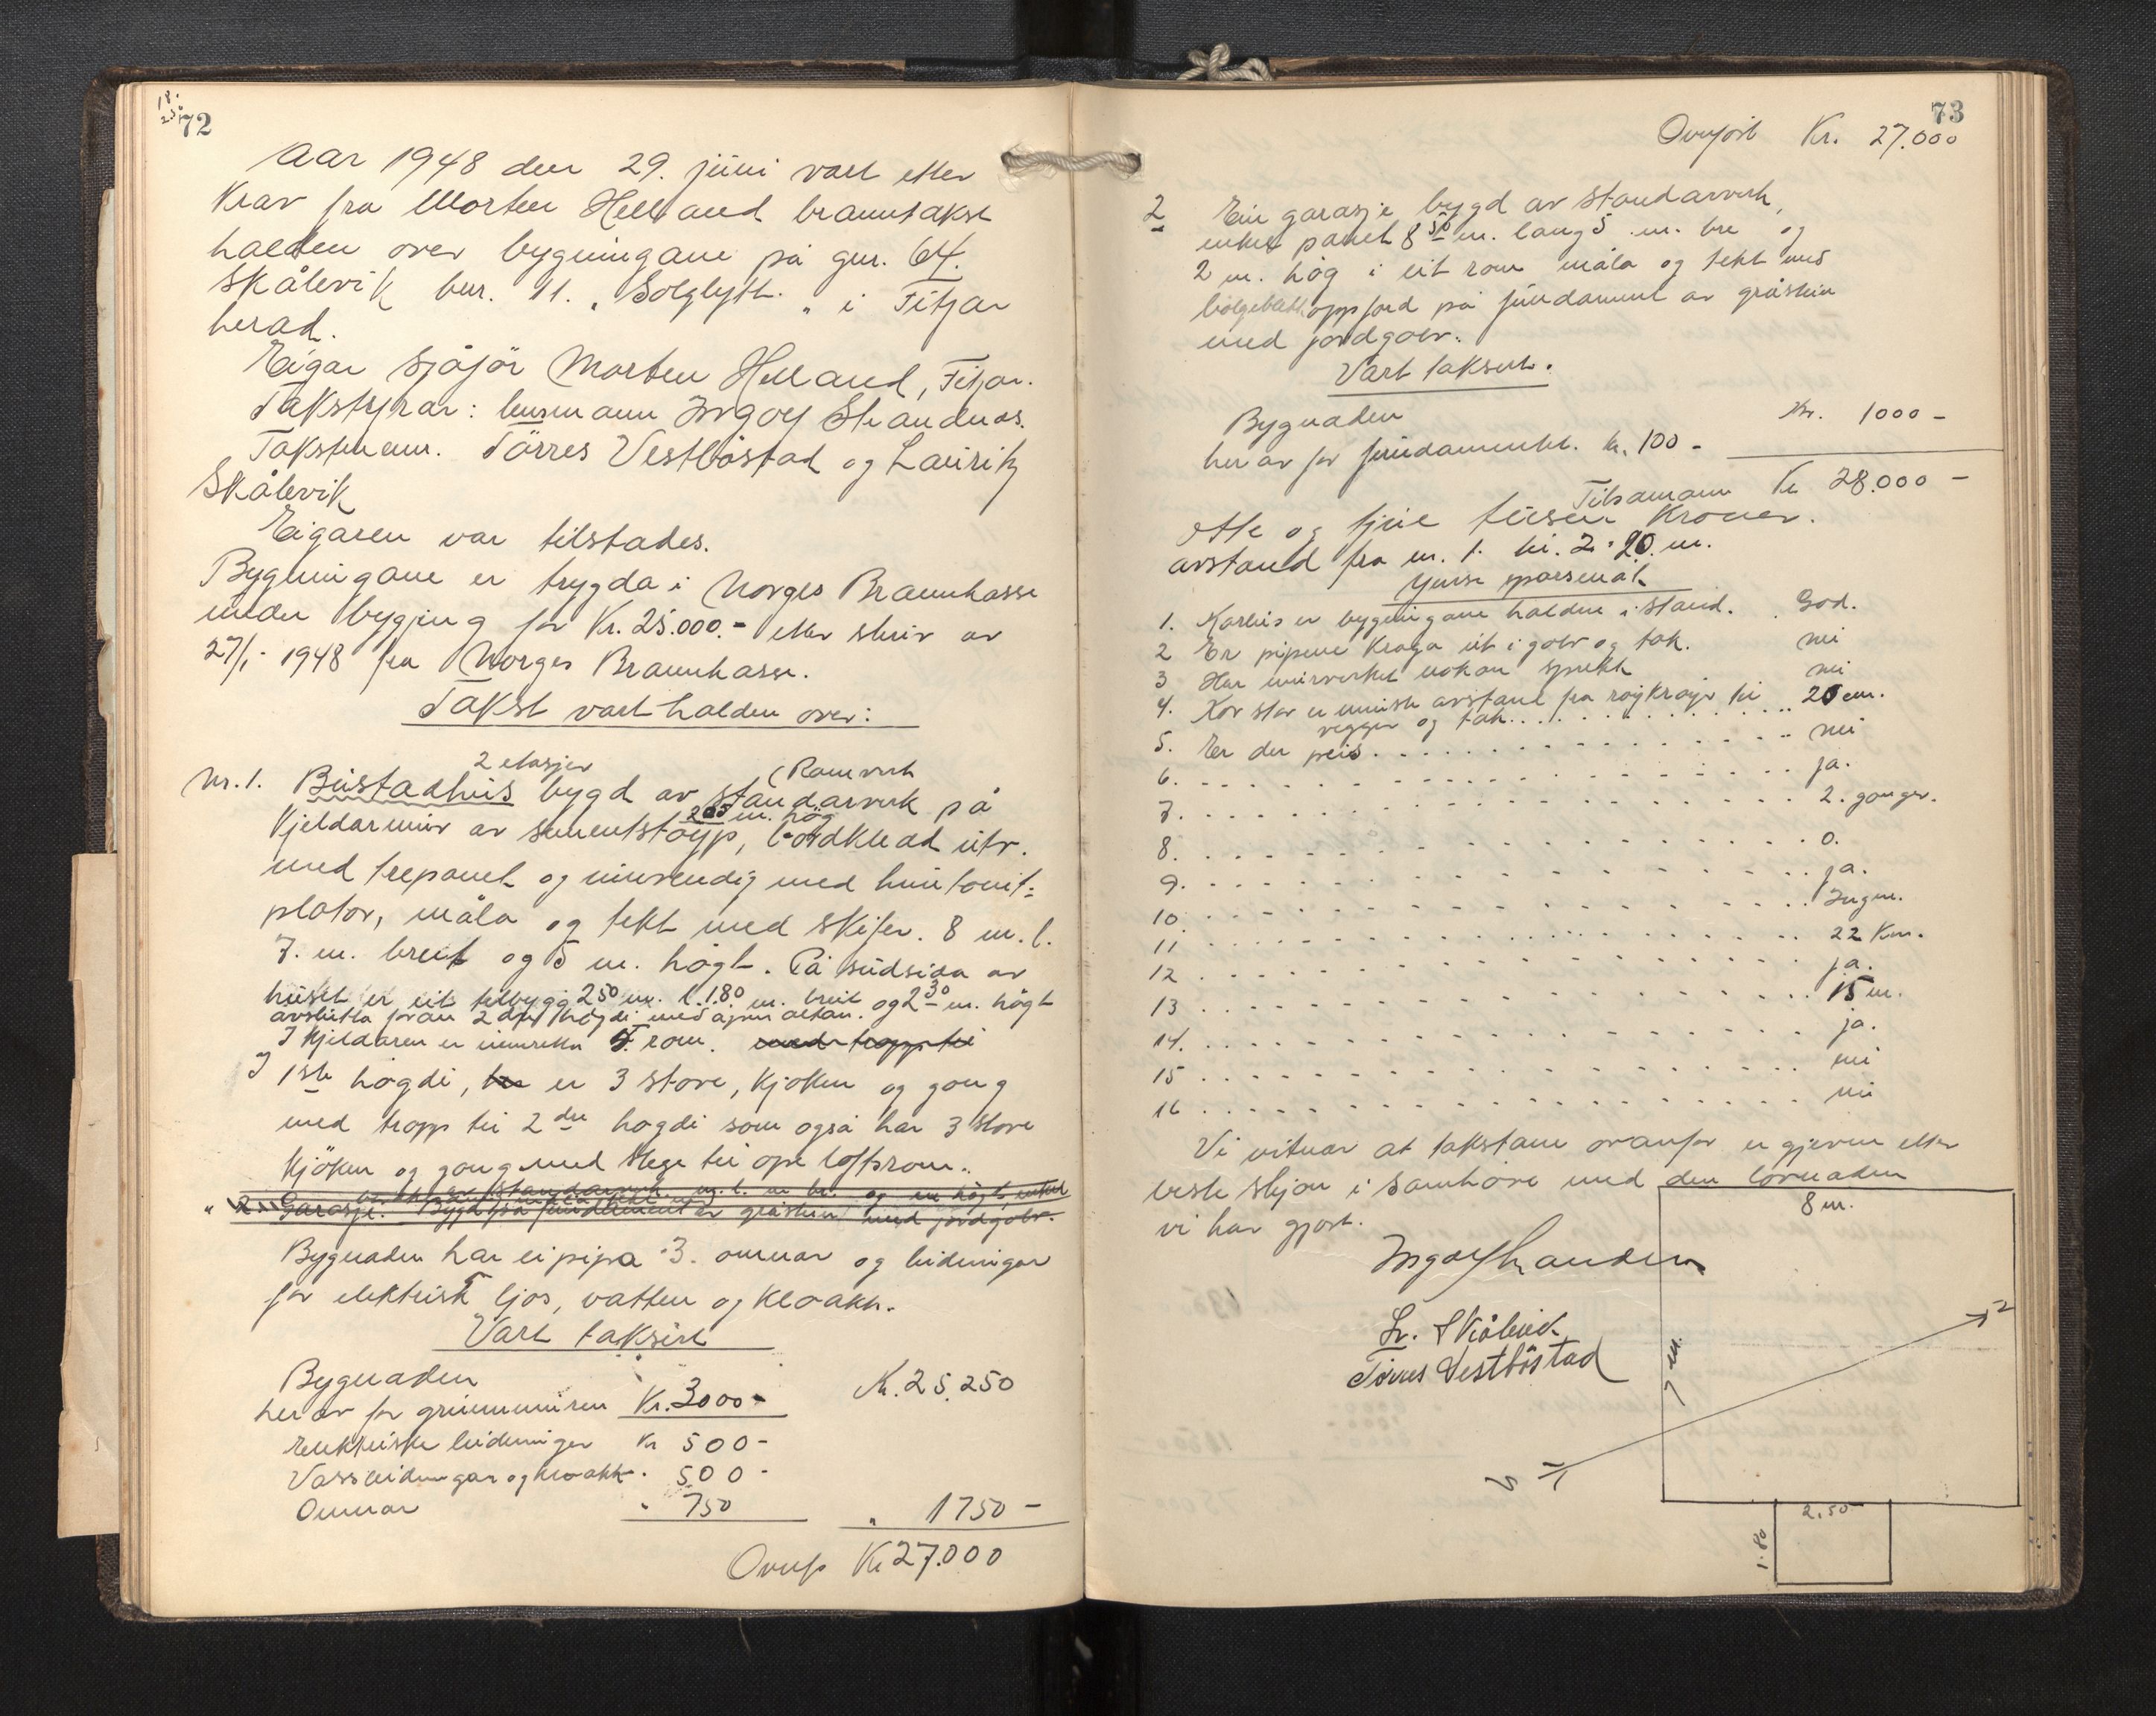 18.
25
72
Aar 1948 den 29. juni vart etter
Krav fra Morten Helland branntakst
halden over bygningane på gnr. 64.
Skålevik bnr. 11. "Solglytt" i Fitjar
herad.
Eigar Sjåfør Morten Helland, Fitjar.
Takstyrar: lensmann Ingolf Strandnes.
Takstmenn. Tørres Vestbøstad og Lauritz
Skålevik
Eigaren var tilstades.
Bygningane er trygda i Norges Brannkasse
under bygjing for Kr. 25.000.- etter skriv av
27/1- 1948 fra Norges Brannkasse.
Takst vart halden over:
2 etasjer (Ramverk
Nr. 1. Bustadhus bygd av standarverk på
m. høg
Kjeldarmur av sementstøyp, bordkledd utv.
med trepanel og innvendig med huntonit-
plator, måla og tekt med skifer. 8 m. l.
7. m. breit og 5 m. høgt. På sudsida av
huset er eit tilbygg 2 50 m. l. 1.80 m. breit og 2 30 m. høgt
avslutta foran 2dre høgdi med open altan.
I Kjeldaren er innreia 4. rom. med tropp til
I 1ste høgdi, er 3 stove, Kjøken og gong
med tropp til 2dre høgdi som også har 3 stove
Kjøken og gong med stege til ope loftsrom.
av standarverk m. l. m br. og m høgt enkel
" 2. Garasje. Bygd på fundament av gråstein med jordgolv.
Bygnaden har ei pipa 3. omnar og leidningar
for elektrisk ljos, vatten og kloakk.
Vart taksert
Bygnaden Kr. 25.250
herav for grunnmuren Kr. 3000-
Elektriske leidninger Kr 500-
Vassleidningar og kloakk. 500-
Omnar " 750 " 1750-
Overf Kr 27.000
73
Overført Kr. 27.000
2 Ein garasje bygd av standarverk,
enkel panel 8 50 m. lang 5 m. bre og
2 m. høg i eit rom måla og tekt med
bølgeblekk oppførd på fundament av gråstein
med jordgolv.
Vart taksert.
Bygnaden Kr. 1000-
herav for fundamentet. kr. 100-
Tilsamann Kr 28.000-
Otte og tjue tusen Kroner.
avstand fra nr. 1. til. 2. 20. m.
Ymse spørsmål.
1. Korleis er bygningane haldne i stand. God.
2 Er pipene Kraga ut i golv og tak. nei
3 Har murverket nokon sprekk nei
4. Kor stor er minste avstand fra røykrøyr til 20 cm.
vegger og tak
5. Er der peis nei
6. ja.
7. 2. gonger.
8. 0.
9. ja.
10. Ingen.
11 22 Km.
12 ja.
13 15 m.
14. ja.
15 nei
16 nei
Vi vitnar at takstane ovanfor er gjevne etter
beste skjøn i samhøve med den lovnaden
vi har gjort.
Ingolf Strandnes
L. Skålevik
Tørres Vestbøstad
8 m.
7 m.
N
S
2.50
1.80